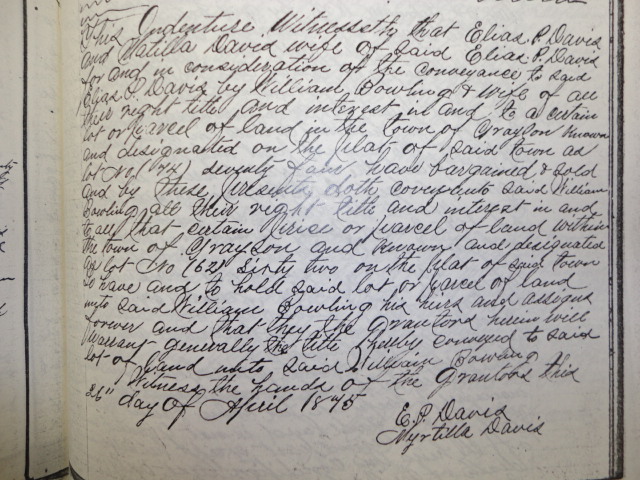 This Indenture Witnesseth that Elias P. Davis
and Matilla Davis wife of said Elias P. Davis
for and in consideration of the conveyance to said
Elias P. Davis by William Bowling & wife of all
their right title and interest in and to a certain
lot or parcel of land in the town of Grayson known
and designated on the plat of said town as
lot No (74) seventy four have bargained & sold
and by these presents doth covenants said William
Bowling all their right title and interest in and
to all that certain piece or parcel of land within
the town of Grayson and known and designated
as lot No (62) Sixty two on the plat of said town
to have and to hold said lot or parcel of land
unto said William Bowling his heirs and assigns
forever and that they the Grantors herein will
Warrant generally the title hereby conveyed to said
lot of land unto said William Bowling
Witness the hands of the Grantors this
26" day of April 1875
E. P. Davis
Myrtilla Davis